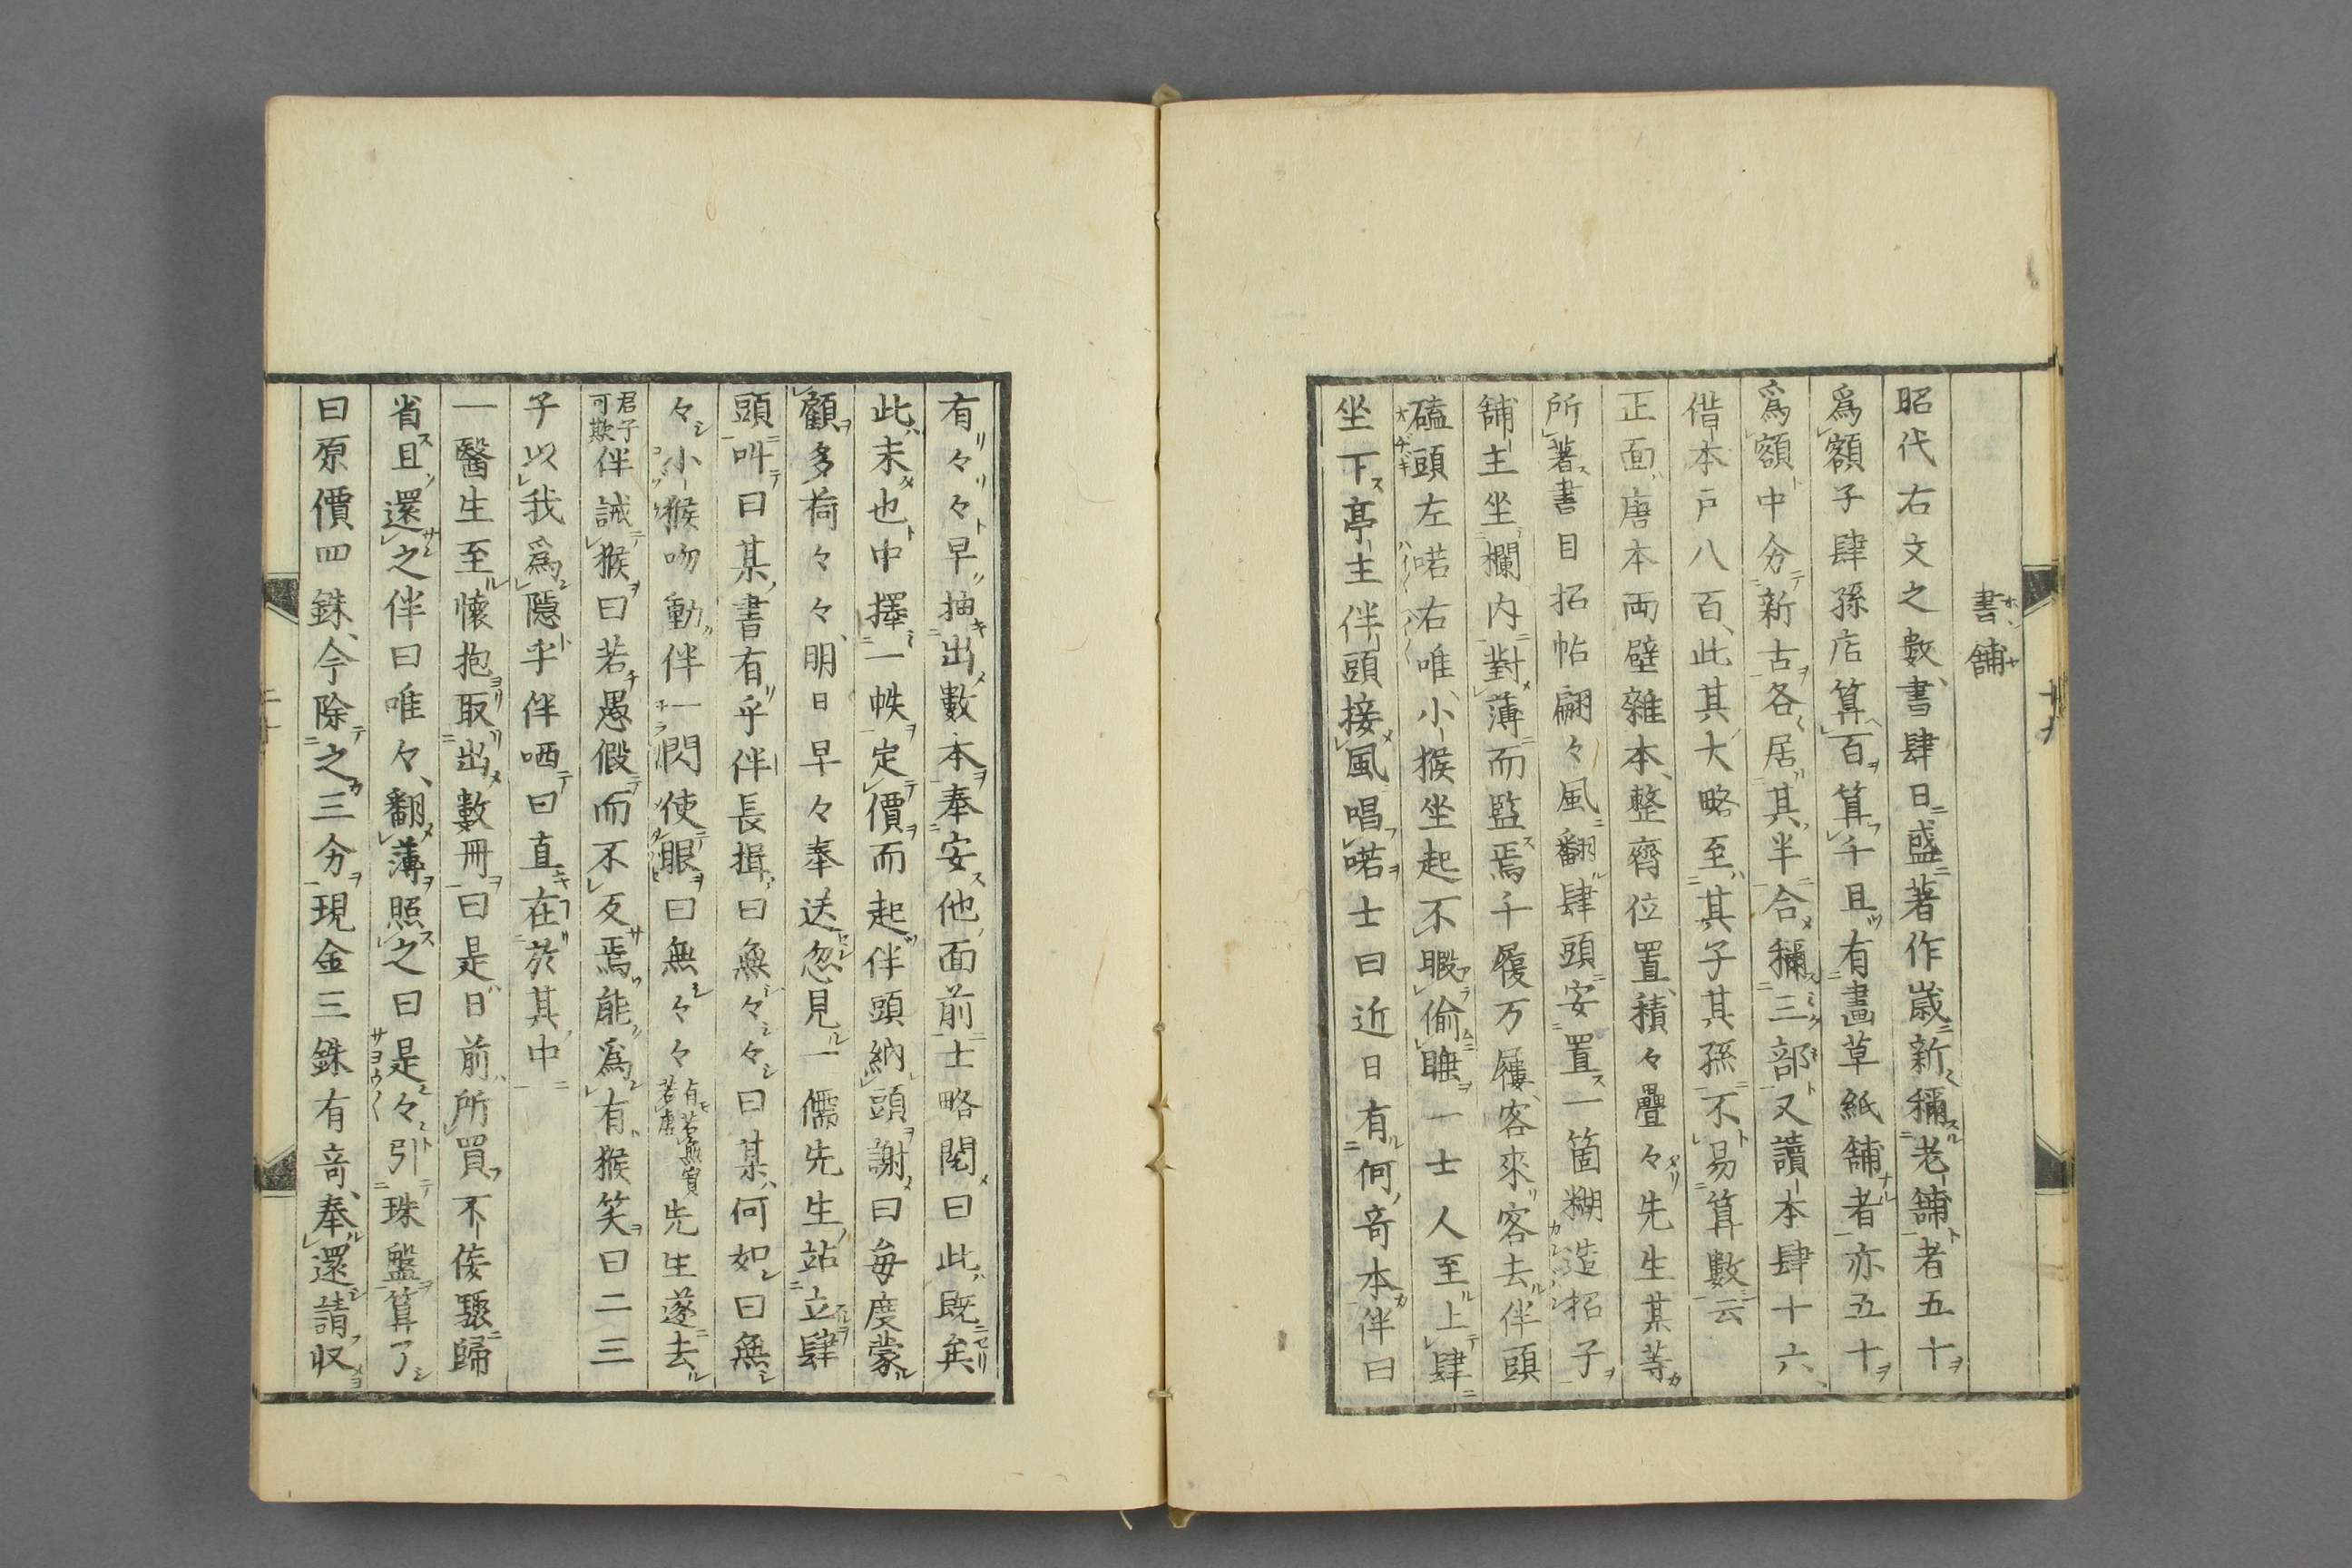 書舗
昭代右文之數、書肆日盛著作歳新稱老舗者五十
爲額子肆孫店算百算千且有畫草紙舗者亦五十
爲額中分新古各居其半合稱三部又讀本肆十六、
偕本戸八百、此其大略至其子其孫不易算數云
正面唐本両壁雜本、整齊位置、積々疊々先生某等
所著書目招帖翩々風翻肆頭安置一箇糊造招子
舗主坐欄内對薄而監焉千履万屨、客來客去伴頭
磕頭左喏右唯、小猴坐起不暇偷睡一士人至上肆
坐下亭主伴頭接風唱喏士曰近日有何竒本伴曰
有々々早抽出數本奉安他面前士略閲曰此既矣
此未也中擇一帙定價而起伴頭納頭謝曰毎度蒙
顧多荷々々、明日早々奉送忽見一儒先生站立肆
頭叫曰某書有乎伴長揖曰無々々曰某何如曰無
々小猴吻動伴一閃使眼曰無々々有若無實若虚先生遂去
君子可欺伴誡猴曰若愚假而不反焉能爲有猴笑曰二三
子以我爲隱乎伴哂曰直在於其中
一醫生至懷抱取出數冊曰是日前所買不佞驅歸
省且還之伴曰唯々、翻薄照之曰是々引珠盤算了
曰原價四銖、今除之三分現金三銖有竒、奉還請収